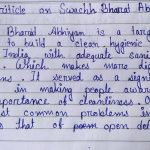 Article on Swachh Bharat Abh
Bharat Abhiyan is a larg
to build a clean, hygienic
India with adequate sani
. Which makes more dig
ns. It served as a signi
in making people awar
portance of cleanliness. O
st common problems in
s that of open def